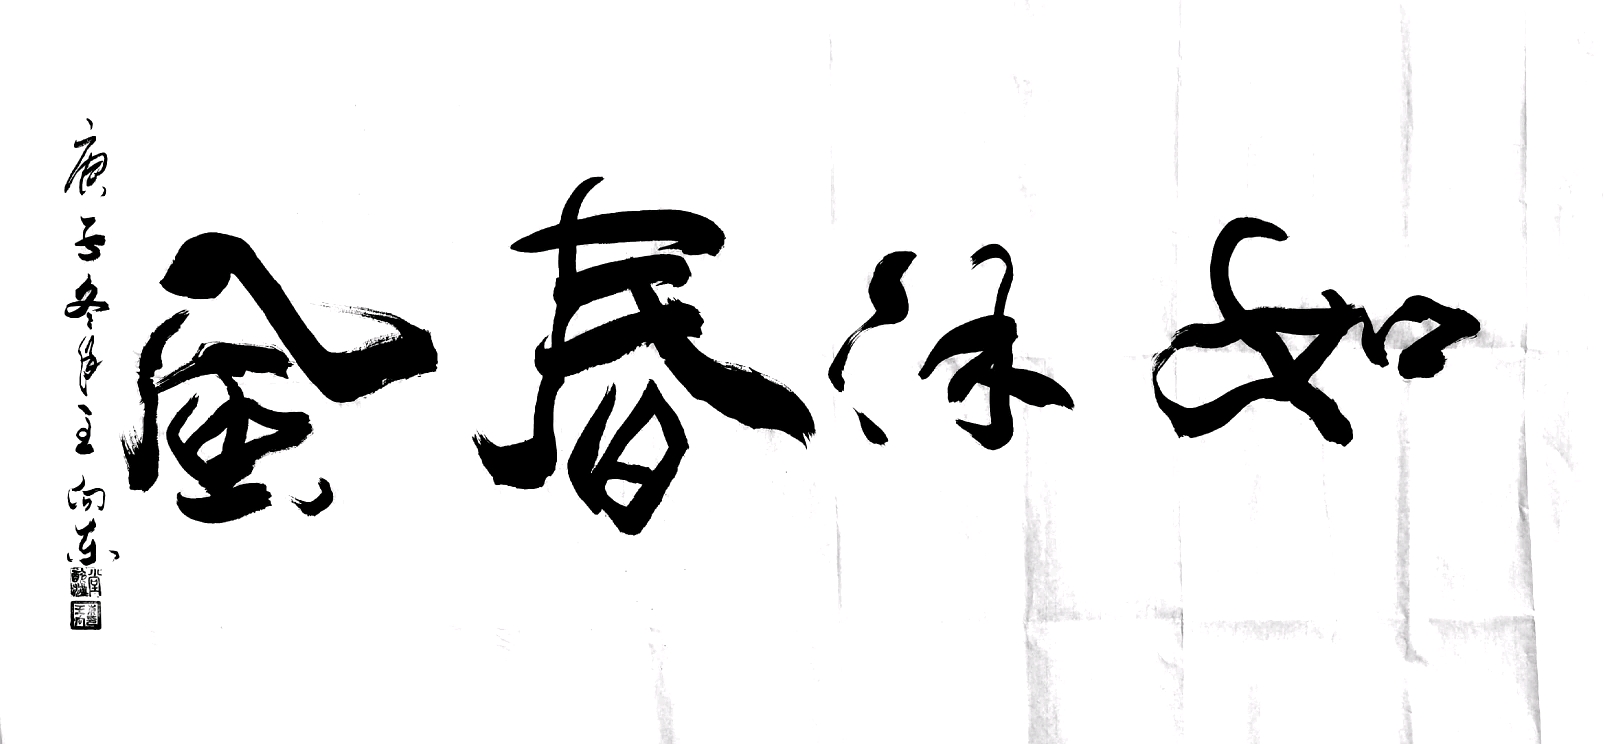 如沐春風
庚子冬月王向东